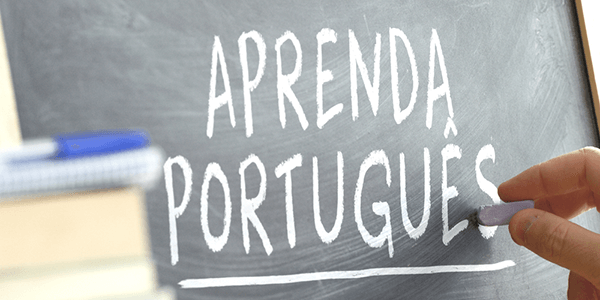 APRENDA
PORTUGUÊS